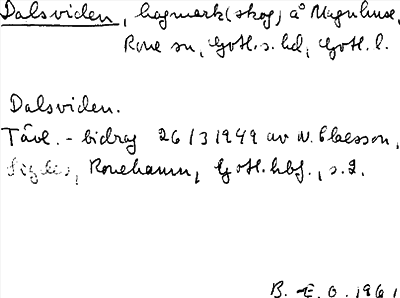 Dalsviden, hagmark (skog) å Magnhuse,
Rone sn, Gotl. s. hd, Gotl. l.
Dalsviden.
Tävl. - bidrag 26/3 1949 av N. Claesson,
Ronehamn, Gotl. hbf., s. 2.
B. E. O. 1961